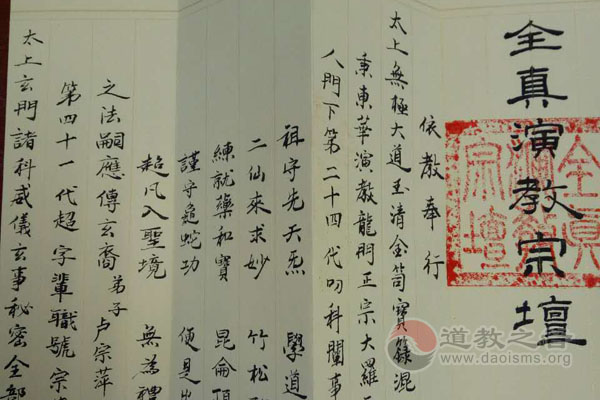 全真演教宗壇
依教奉行
太上無極大道玉清金笥寶籙混
秉東華演教龍門正宗大羅
人門下第二十四代叨科闡事
祖守先天炁 學道
二仙來求妙 竹松
練就藥和寶 昆侖頂
謹守龜蛇功 便是
超凡入聖境 無為禮
之法嗣應傳玄裔 弟子 卢宗萍
第四十一代超字輩職號宗
太上玄門諸科威儀玄事秘密全部
全真
宗壇
道教之音
www.daoisms.org